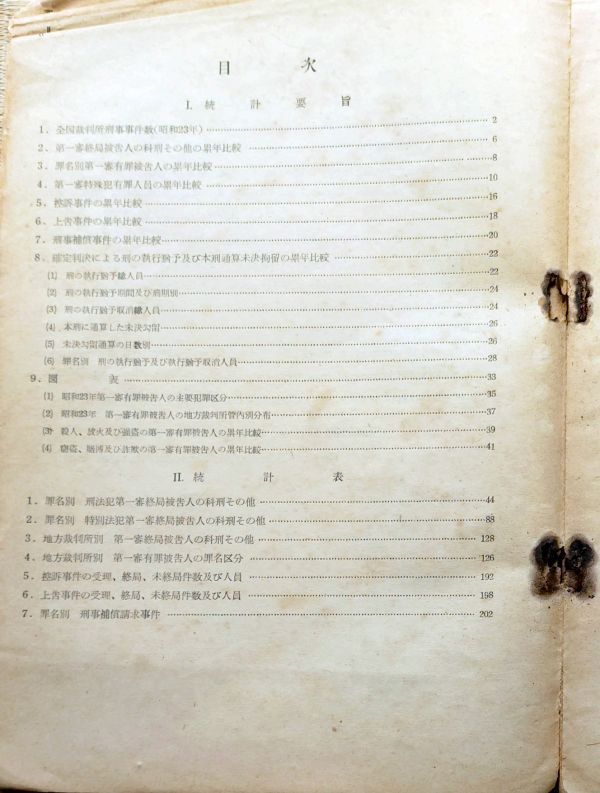 目次
I. 統計要旨
1. 全国裁判所刑事事件数(昭和23年) 2
2. 第一審終局被告人の科刑その他の累年比較 6
3. 罪名別第一審有罪被告人の累年比較 8
4. 第一審特殊犯有罪人員の累年比較 10
5. 控訴事件の累年比較 16
6. 上告事件の累年比較 18
7. 刑事補償事件の累年比較 20
8. 確定判決による刑の執行猶予及び本刑通算未決拘留の累年比較 22
(1) 刑の執行猶予総人員 22
(2) 刑の執行猶予期間及び刑期別 24
(3) 刑の執行猶予取消総人員 24
(4) 本刑に通算した未決勾留 26
(5) 未決勾留通算の日数別 26
(6) 罪名別 刑の執行猶予及び執行猶予取消人員 28
9. 図表 33
(1) 昭和23年第一審有罪被告人の主要犯罪区分 35
(2) 昭和23年 第一審有罪被告人の地方裁判所管内別分布 37
(3) 殺人、放火及び強盗の第一審有罪被告人の累年比較 39
(4) 窃盗、賭博及び詐欺の第一審有罪被告人の累年比較 41
II. 統計表
1. 罪名別 刑法犯第一審終局被告人の科刑その他 44
2. 罪名別 特別法犯第一審終局被告人の科刑その他 88
3. 地方裁判所別 第一審終局被告人の科刑その他 128
4. 地方裁判所別 第一審有罪被告人の罪名区分 126
5. 控訴事件の受理、終局、未終局件数及び人員 192
6. 上告事件の受理、終局、未終局件数及び人員 198
7. 罪名別 刑事補償請求事件 202